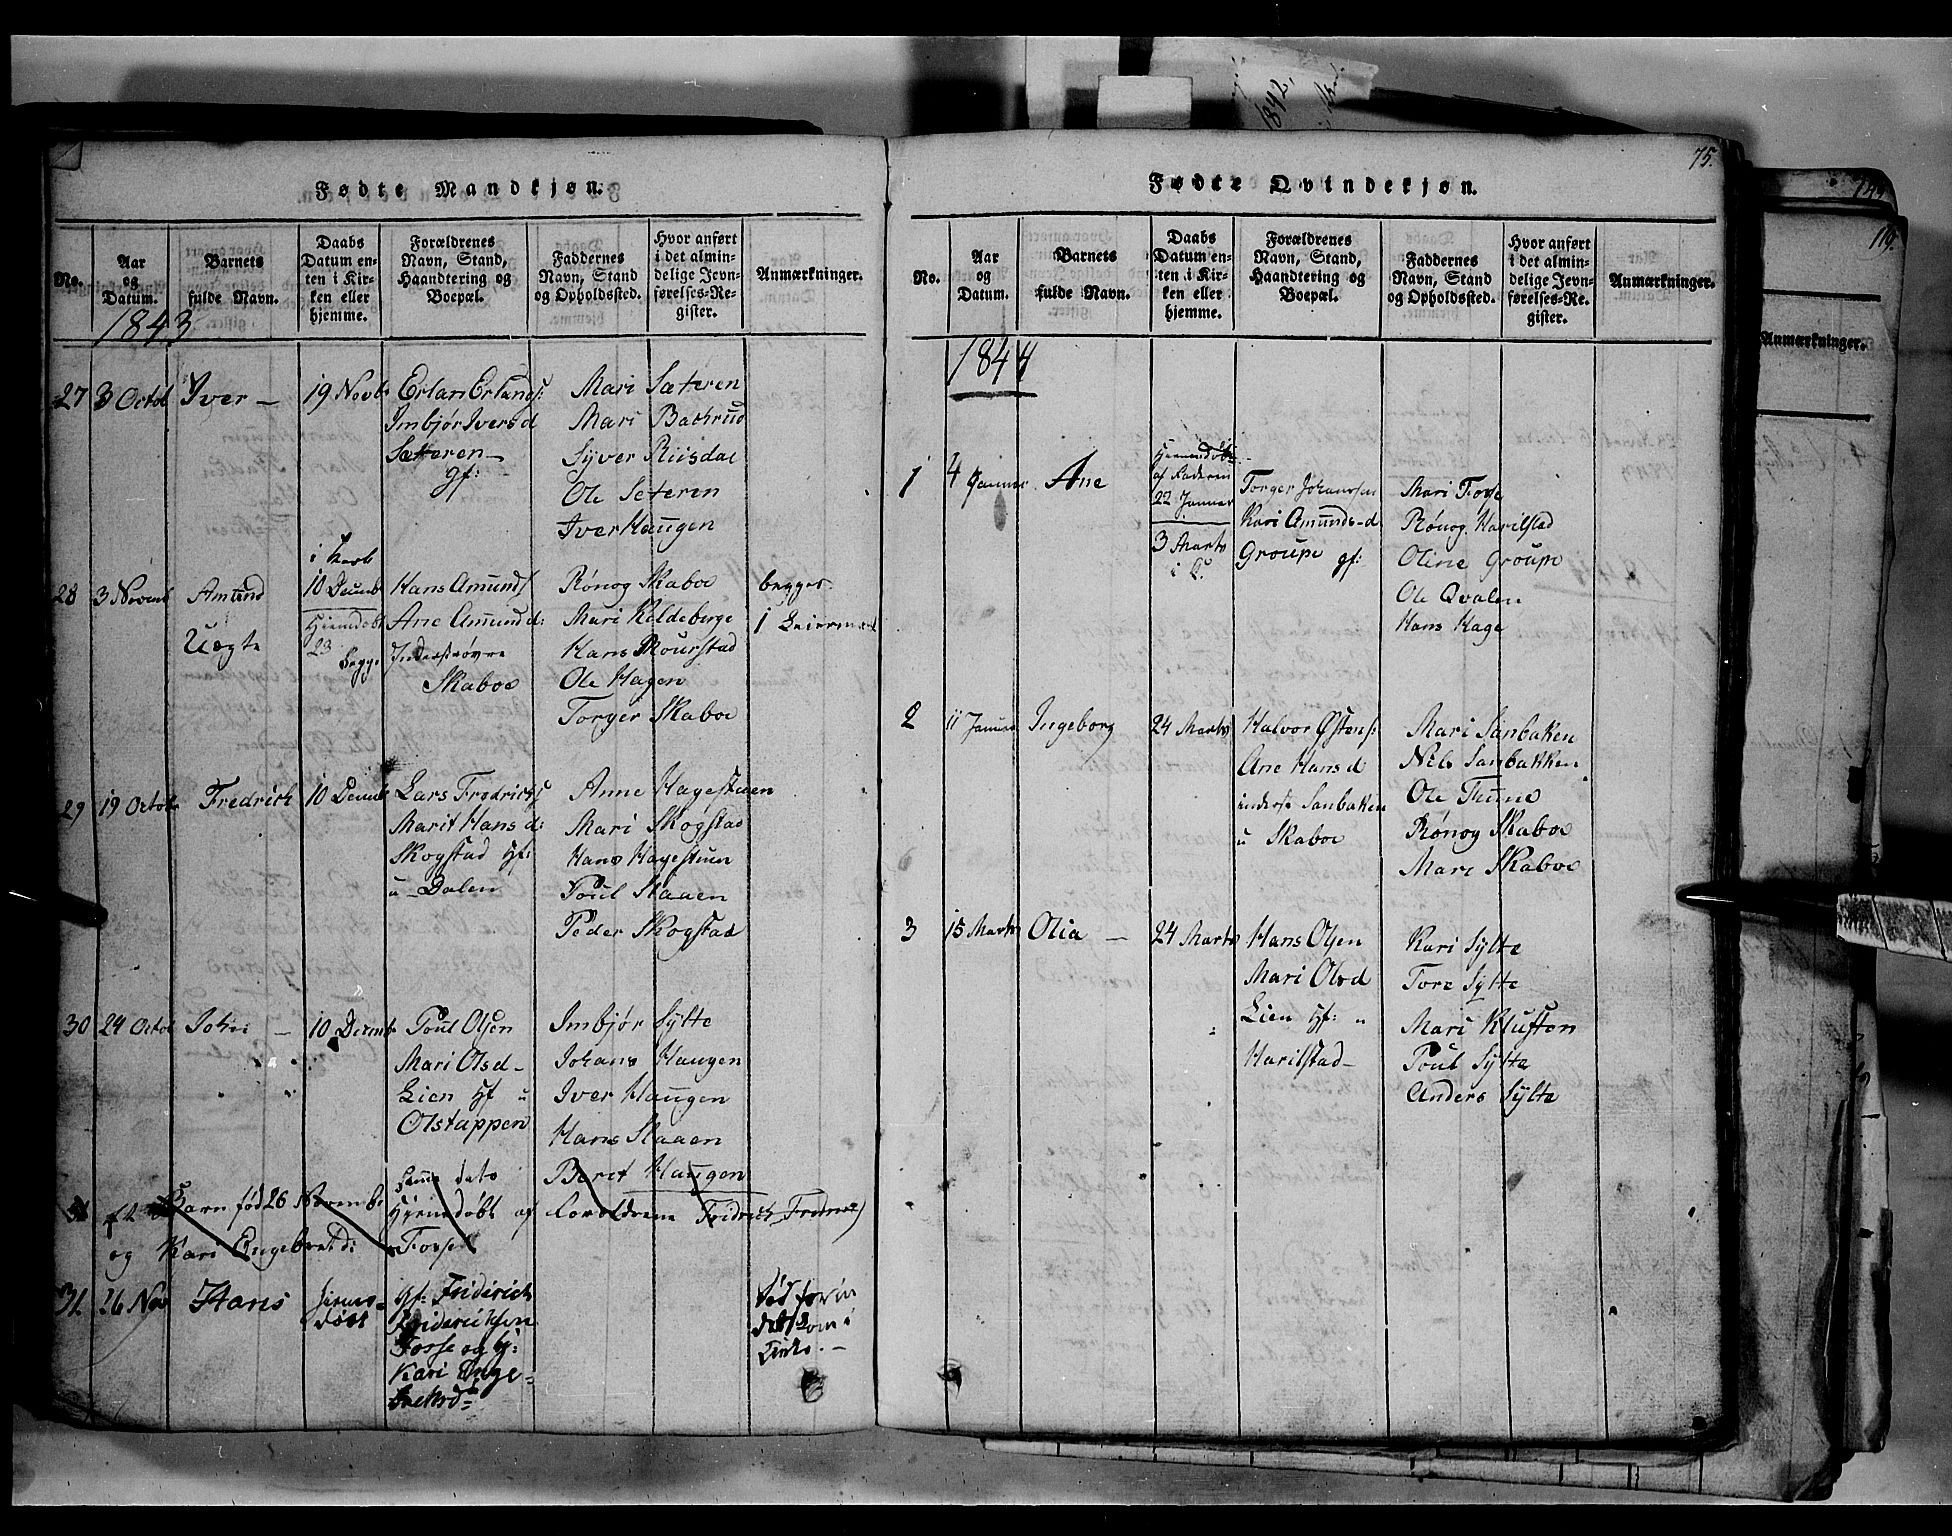 Fødte Mandkjøn.
No.
Aar og Datum.
Barnets fulde Navn.
Daabs Datum enten i Kirken eller hjemme.
Forældrenes Navn, Stand, Haandtering og Boepæl.
Faddernes Navn, Stand og Opholdssted.
Hvor anført i det almindelige Jevnførelses-Register.
Anmærkninger.
1843
27
3 Octob
Iver —
19 Novb
Erlan Erlands:
Imbjør Ivers d
Sæteren —
gf:
Mari Sæteren
Mari Bachrud
Syver Riisdal
Ole Seteren
Iver Haugen
28
3 Novemb
Amund
Uægte
10 Decemb
Hjemdøbt
23
Hans Amunds
Ane Amund d:
Skaboe
Rønog Skaboe
Mari Keldeberge
Hans Rourstad
Ole Hagen
Torger Skaboe
begges
1 Leiermaal
29
19 Octob
Fredrich
10 Decemb
Lars Fredrichs
Marit Hans d:
Skogstad Hf:
u Dalen
Anne Hagestuen
Mari Skogstad
Hans Hagestuen
Poul Staaen
Peder Skogstad
30
24 Octob
John —
10 Decemb
Poul Olsen
Mari Olsd —
Lien Hf u
Olstappen
Imbjør Sylte
Johans Haugen
Iver Haugen
Hans Staaen
Berit Haugen
Barn fød 26 Novembr
Hjemdøbt af Forældrene Fridrich
og Kari Engebretd:
Fosse
31.
26 Nov
Hans
hjemmedøbt
gf: Friderich
Friderichsen
Fosse og h:
Kari Engebretsd:
Død forin
det kom i
Kirke. —
75.
Fødte Qvindekjøn.
No.
Aar og Datum.
Barnets fulde Navn.
Daabs Datum enten i Kirken eller hjemme.
Forældrenes Navn, Stand, Haandtering og Boepæl.
Faddernes Navn, Stand og Opholdssted.
Hvor anført i det almindelige Jevnførelses-Register.
Anmærkninger.
1844
1
4 Januar
Ane
Hjemmedøbt
af Faderen
22 Januar
3 Marts
i K.
Torger Johansen
Kari Amunds-d
Groupe gf:
Mari Fosse
Rønog Harilstad
Oline Groupe
Ole Qvalen
Hans Hage
2
11 Januar
Ingeborg
24 Marts
Halvor Østens:
Ane Hans d
inderst Sanbaken
u Skaboe
Mari Sanbaken
Nels Sanbakken
Ole Thune
Rønog Skaboe
Mari Skaboe
3
15 Marts
Olia —
24 Marts
Hans Olsen
Mari Olsd
Lien Hf: u
Harilstad —
Kari Sylte
Tore Sylte
Mari Kluften
Poul Sylte
Anders Sylte
119.
Anmærkninger.
1842.